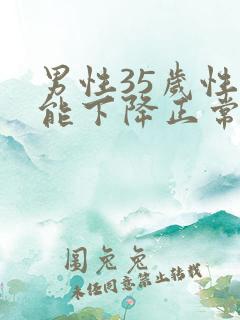 男性35歲性
能下降正常
圖兔兔
未经同意禁止转载